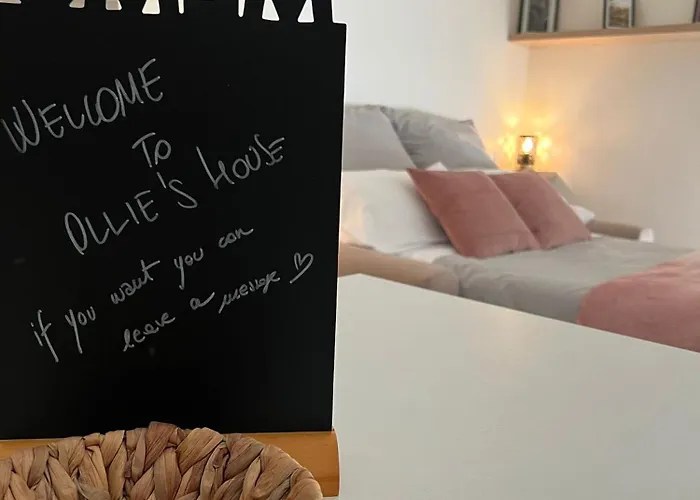 WELCOME
TO
OLLIE'S HOUSE
if you want you can
leave a message ♡